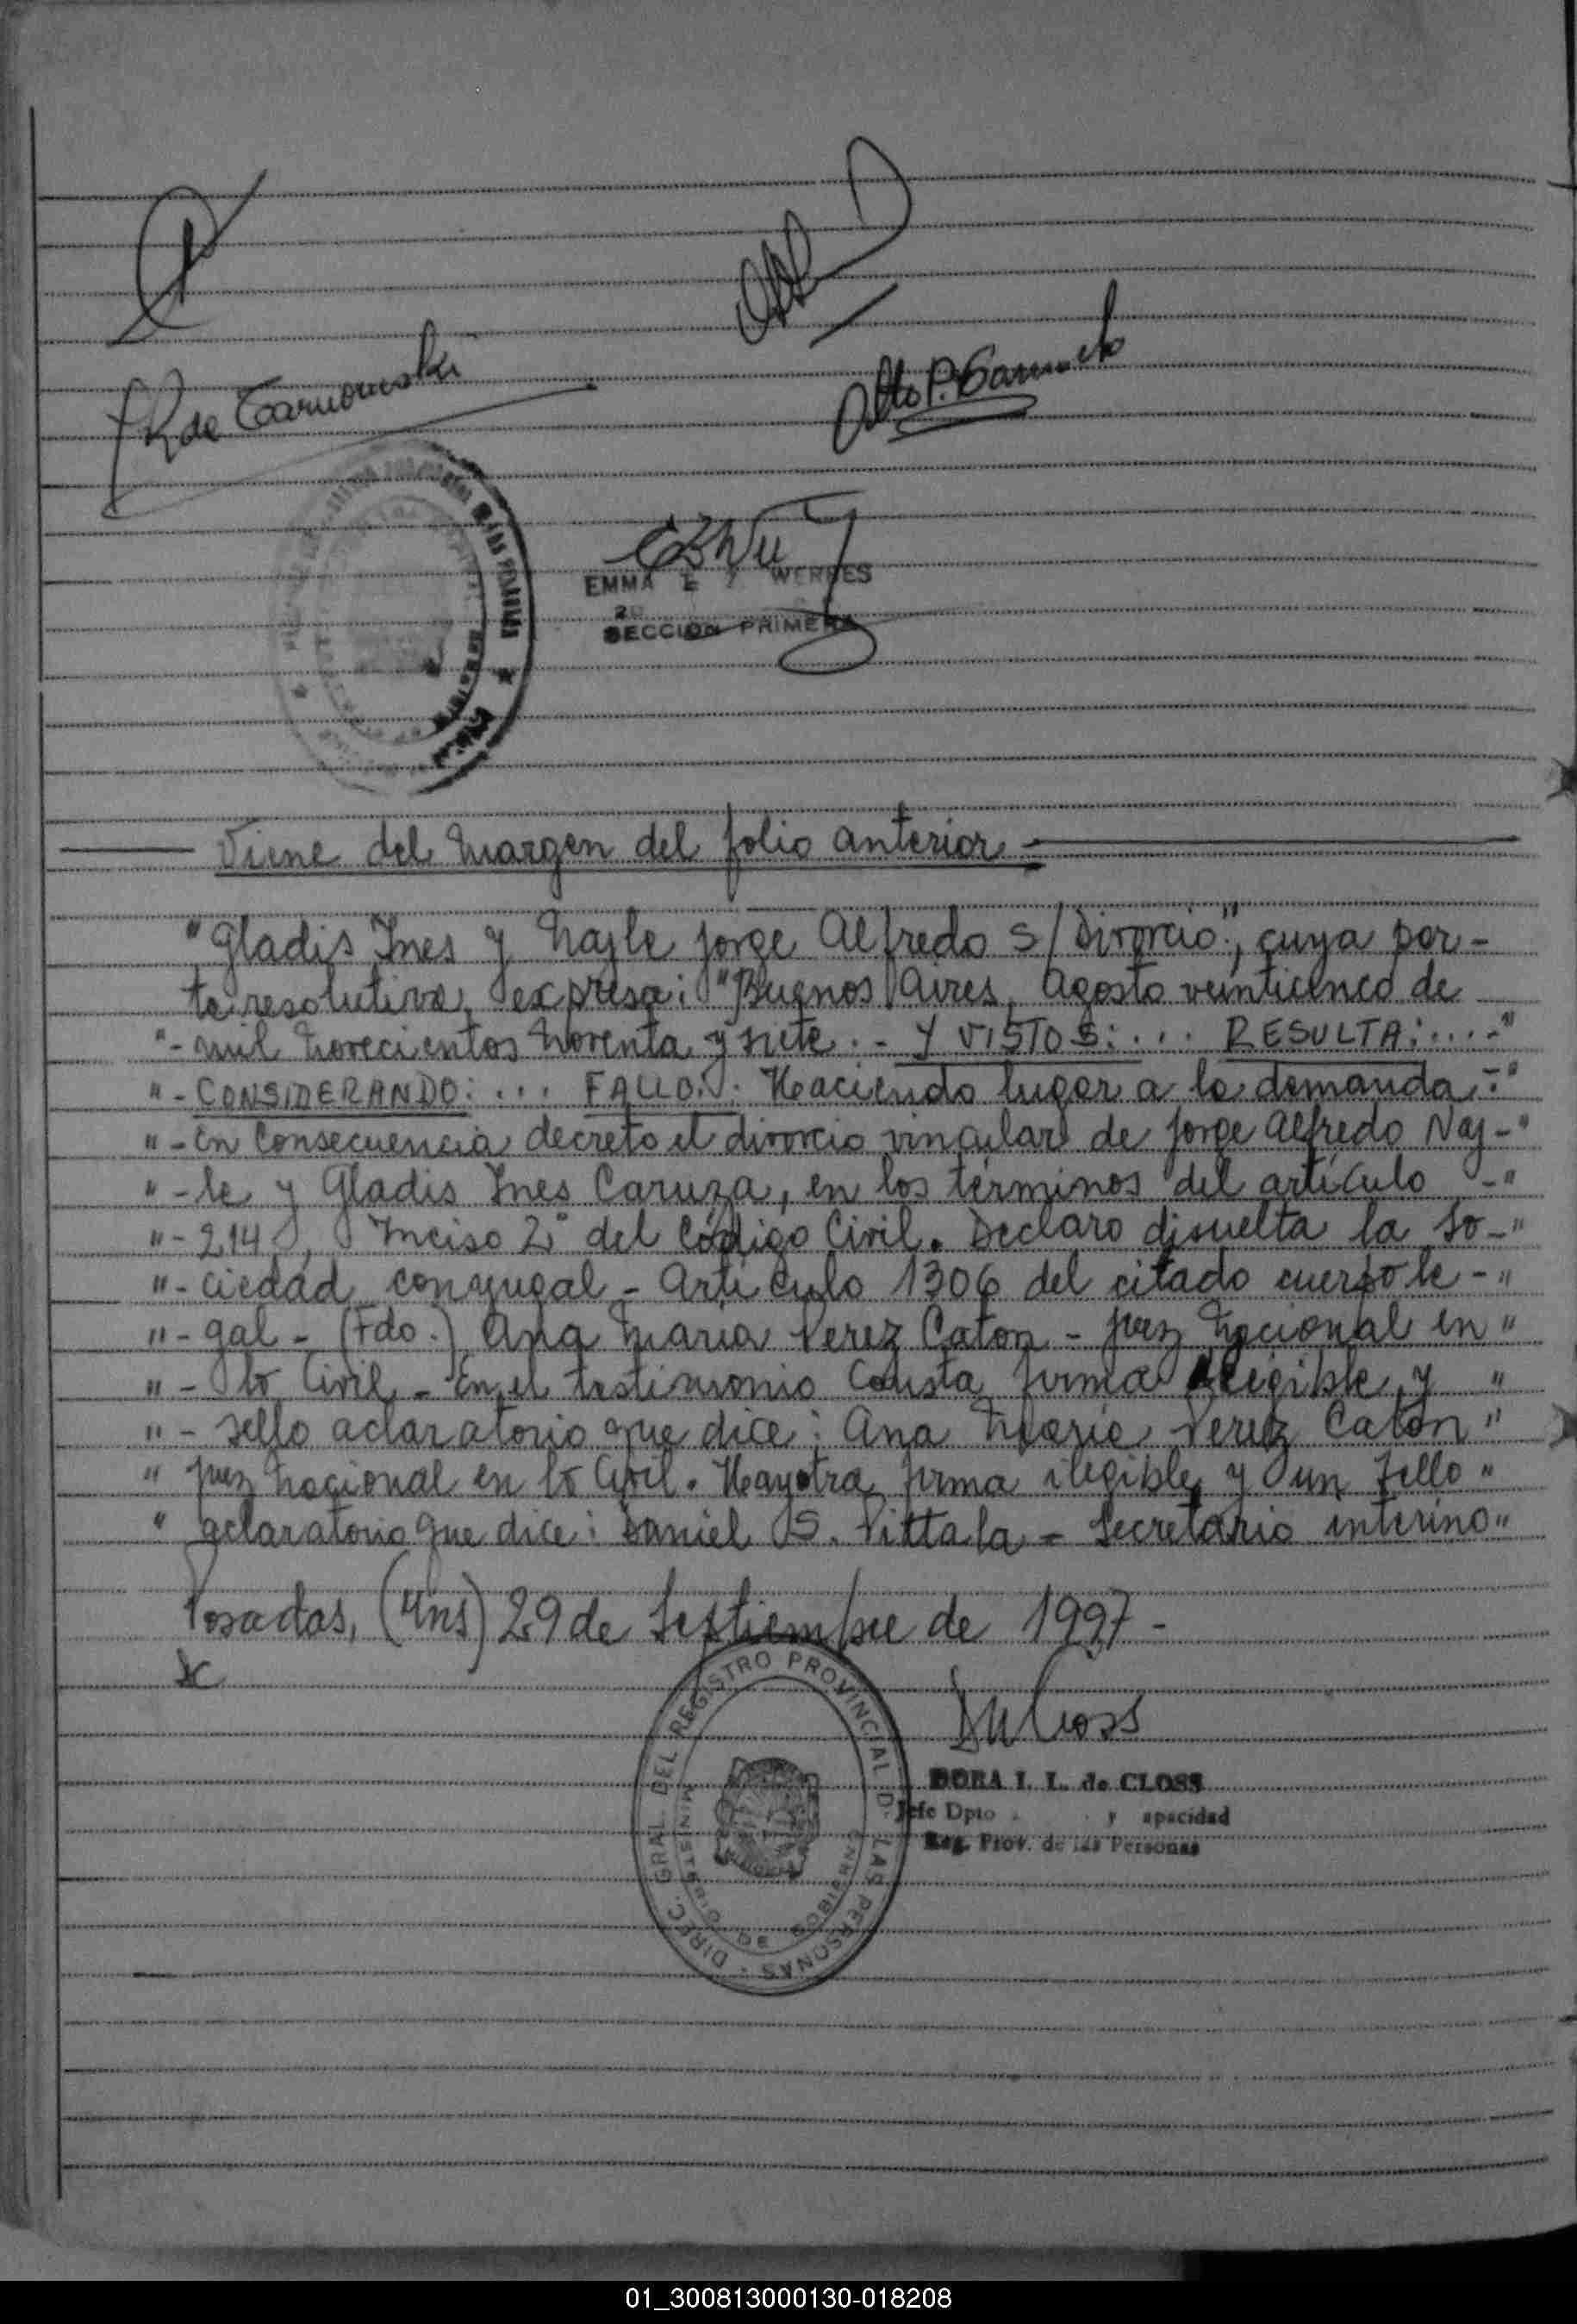 de Tarnowski
Otto P.
EMMA E WERNES
SECCION PRIMERA
Viene del Margen del folio anterior
"Gladis Ines y Najle Jorge Alfredo S/ Divorcio", cuya par-
te resolutiva, expresa: "Buenos Aires, Agosto veinticinco de
"- mil novecientos noventa y siete. - Y VISTOS: ... RESULTA: ....-"
"- CONSIDERANDO: ... FALLO: Haciendo lugar a la demanda -"
"- En Consecuencia decreto el divorcio vincular de Jorge Alfredo Naj-"
"- le y Gladis Ines Caruza, en los términos del artículo -"
"- 214, Inciso 2° del Código Civil. Declaro disuelta la So-"
"- ciedad conyugal - Artículo 1306 del citado cuerpo le -"
"- gal - (Fdo.) Ana Maria Perez Caton - Juez Nacional en "
"- lo Civil - En el testimonio Consta firma ilegible, y "
"- sello aclaratorio que dice: Ana Maria Perez Catón "
" Juez Nacional en lo Civil. Hay otra firma ilegible y un sello "
" aclaratorio que dice: Daniel S. Pittala - Secretario interino "
Posadas, (Mns) 29 de Septiembre de 1997 -
DIREC. GRAL. DEL REGISTRO PROVINCIAL D. LAS PERSONAS
MINISTERIO DE GOBIERNO
DORA I. L. de CLOSS
Jefe Dpto y apacidad
Reg. Prov. de las Personas
01_300813000130-018208